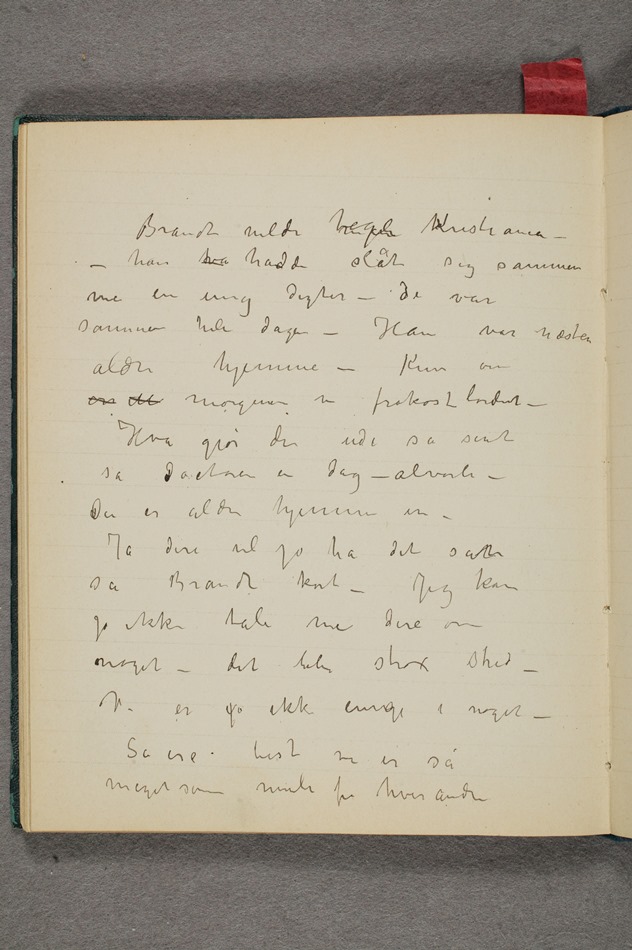 Brandt vilde Kristiania –
– han ha hadde slåt sig sammen
me en ung digter – De var
sammen hele dagen – Han var næsten
aldri hjemme – Kun om
om morgenen v frokostbordet –
Hva gjør du ude så sent
sa doctoren en dag – alvorli –
Du er aldri hjemme en –
Ja dere vil jo ha det så
sa Brandt kort – Jeg kan
jo ikke tale me dere om
noget – det blir strax strid –
Vi er jo ikk enige i noget –
Så ere best vi er så
meget som muli fra hverandre